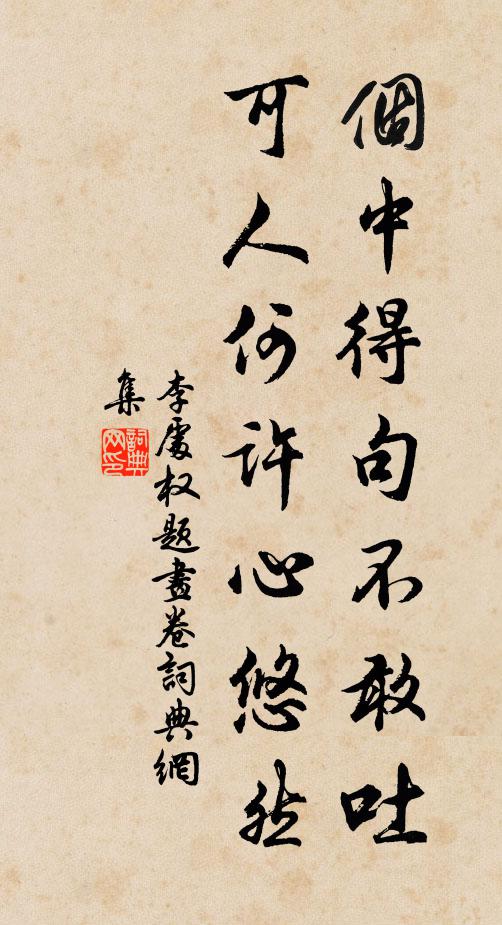 個中得句不敢吐
可人何許心悠然
李處权题畫卷詞典網
集
詞典網印